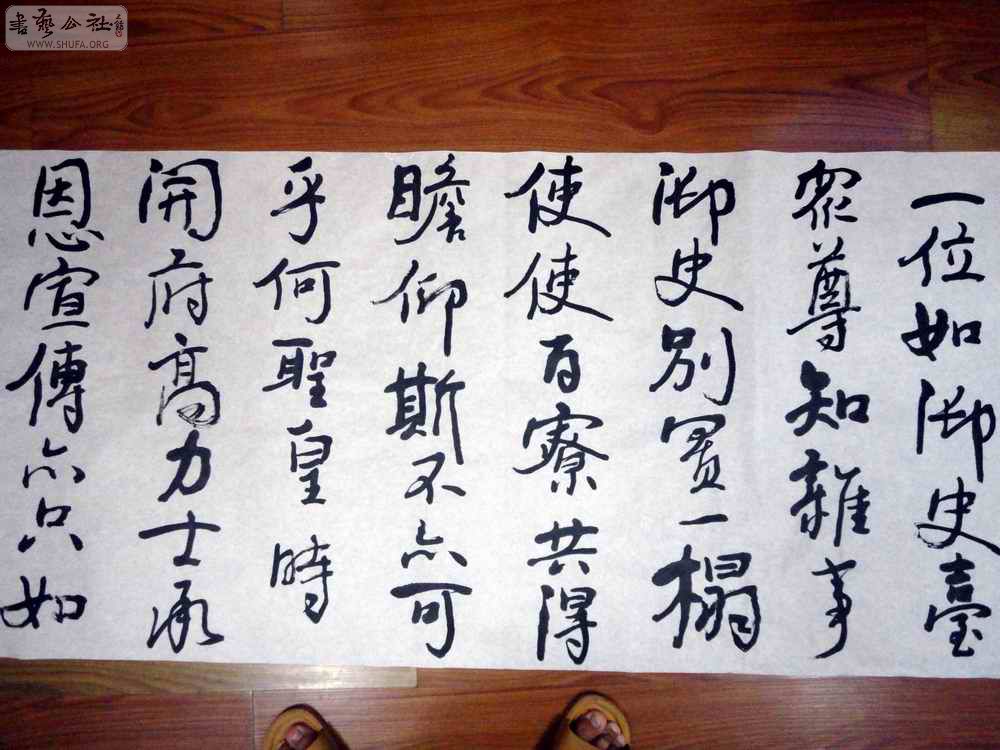 書藝公社
WWW.SHUFA.ORG
一位如御史臺
衆尊知雜事
御史別置一榻
使使百寮共得
瞻仰斯不亦可
乎何聖皇時
開府高力士承
恩宣傳亦只如